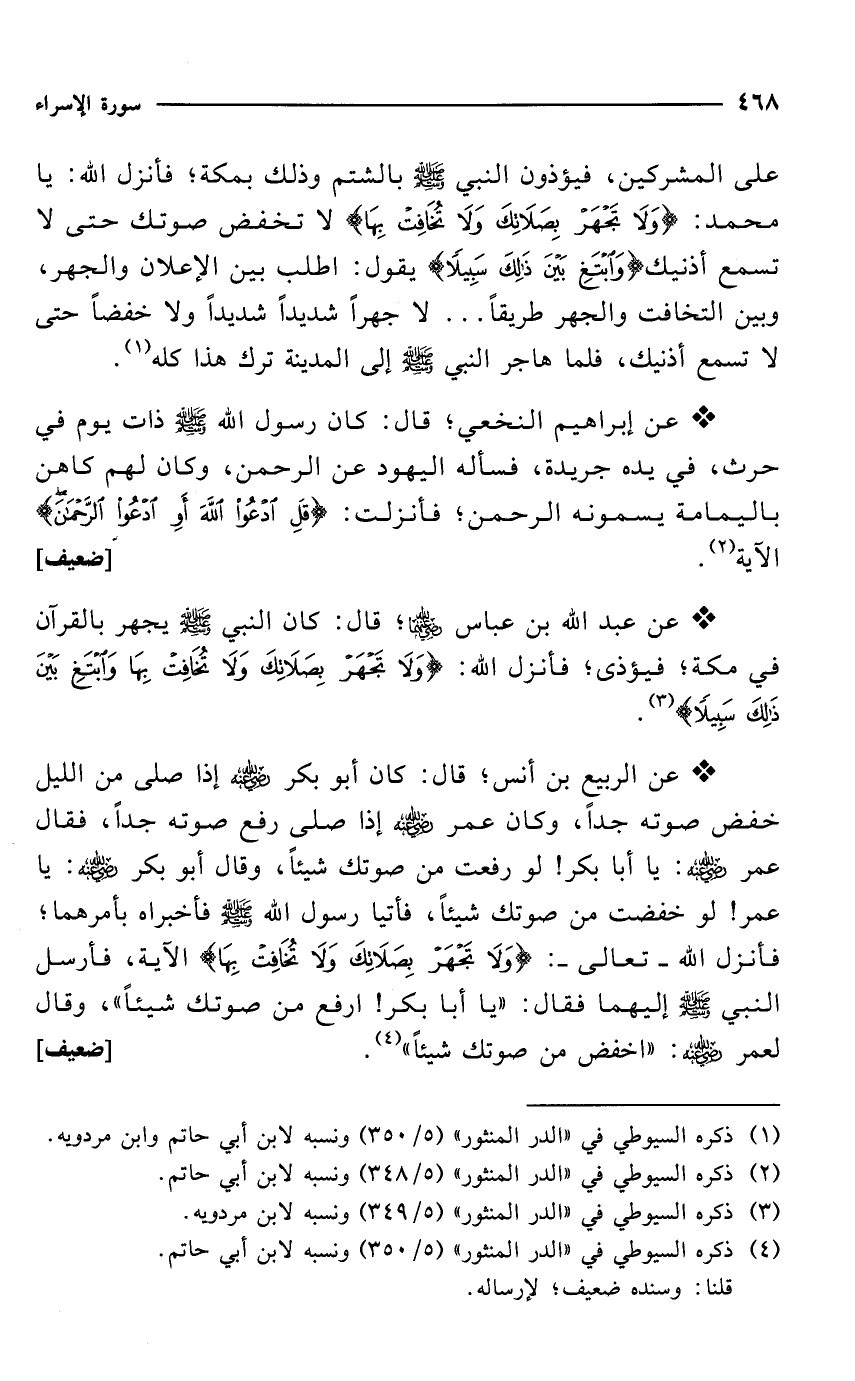 ٤٦٨ سورة الإسراء
على المشركين، فيؤذون النبي ﷺ بالشتم وذلك بمكة؛ فأنزل الله: يا
محمد: ﴿وَلَا تَجْهَرْ بِصَلَاتِكَ وَلَا تُخَافِتْ بِهَا﴾ لا تخفض صوتك حتى لا
تسمع أذنيك ﴿وَٱبْتَغِ بَيْنَ ذَٰلِكَ سَبِيلًا﴾ يقول: اطلب بين الإعلان والجهر،
وبين التخافت والجهر طريقاً... لا جهراً شديداً شديداً ولا خفضاً حتى
لا تسمع أذنيك، فلما هاجر النبي ﷺ إلى المدينة ترك هذا كله(١).
❖ عن إبراهيم النخعي؛ قال: كان رسول الله ﷺ ذات يوم في
حرث، في يده جريدة، فسأله اليهود عن الرحمن، وكان لهم كاهن
باليمامة يسمونه الرحمن؛ فأنزلت: ﴿قُلِ ٱدْعُوا۟ ٱللَّهَ أَوِ ٱدْعُوا۟ ٱلرَّحْمَٰنَ ۖ﴾
الآية(٢). [ضعيف]
❖ عن عبد الله بن عباس رضي الله عنهما؛ قال: كان النبي ﷺ يجهر بالقرآن
في مكة؛ فيؤذى؛ فأنزل الله: ﴿وَلَا تَجْهَرْ بِصَلَاتِكَ وَلَا تُخَافِتْ بِهَا وَٱبْتَغِ بَيْنَ
ذَٰلِكَ سَبِيلًا﴾(٣).
❖ عن الربيع بن أنس؛ قال: كان أبو بكر رضي الله عنه إذا صلى من الليل
خفض صوته جداً، وكان عمر رضي الله عنه إذا صلى رفع صوته جداً، فقال
عمر رضي الله عنه: يا أبا بكر! لو رفعت من صوتك شيئاً، وقال أبو بكر رضي الله عنه: يا
عمر! لو خفضت من صوتك شيئاً، فأتيا رسول الله ﷺ فأخبراه بأمرهما؛
فأنزل الله ـ تعالى ـ: ﴿وَلَا تَجْهَرْ بِصَلَاتِكَ وَلَا تُخَافِتْ بِهَا﴾ الآية، فأرسل
النبي ﷺ إليهما فقال: «يا أبا بكر! ارفع من صوتك شيئاً»، وقال
لعمر رضي الله عنه: «اخفض من صوتك شيئاً»(٤). [ضعيف]
(١) ذكره السيوطي في «الدر المنثور» (٥/ ٣٥٠) ونسبه لابن أبي حاتم وابن مردويه.
(٢) ذكره السيوطي في «الدر المنثور» (٥/ ٣٤٨) ونسبه لابن أبي حاتم.
(٣) ذكره السيوطي في «الدر المنثور» (٥/ ٣٤٩) ونسبه لابن مردويه.
(٤) ذكره السيوطي في «الدر المنثور» (٥/ ٣٥٠) ونسبه لابن أبي حاتم.
قلنا: وسنده ضعيف؛ لإرساله.